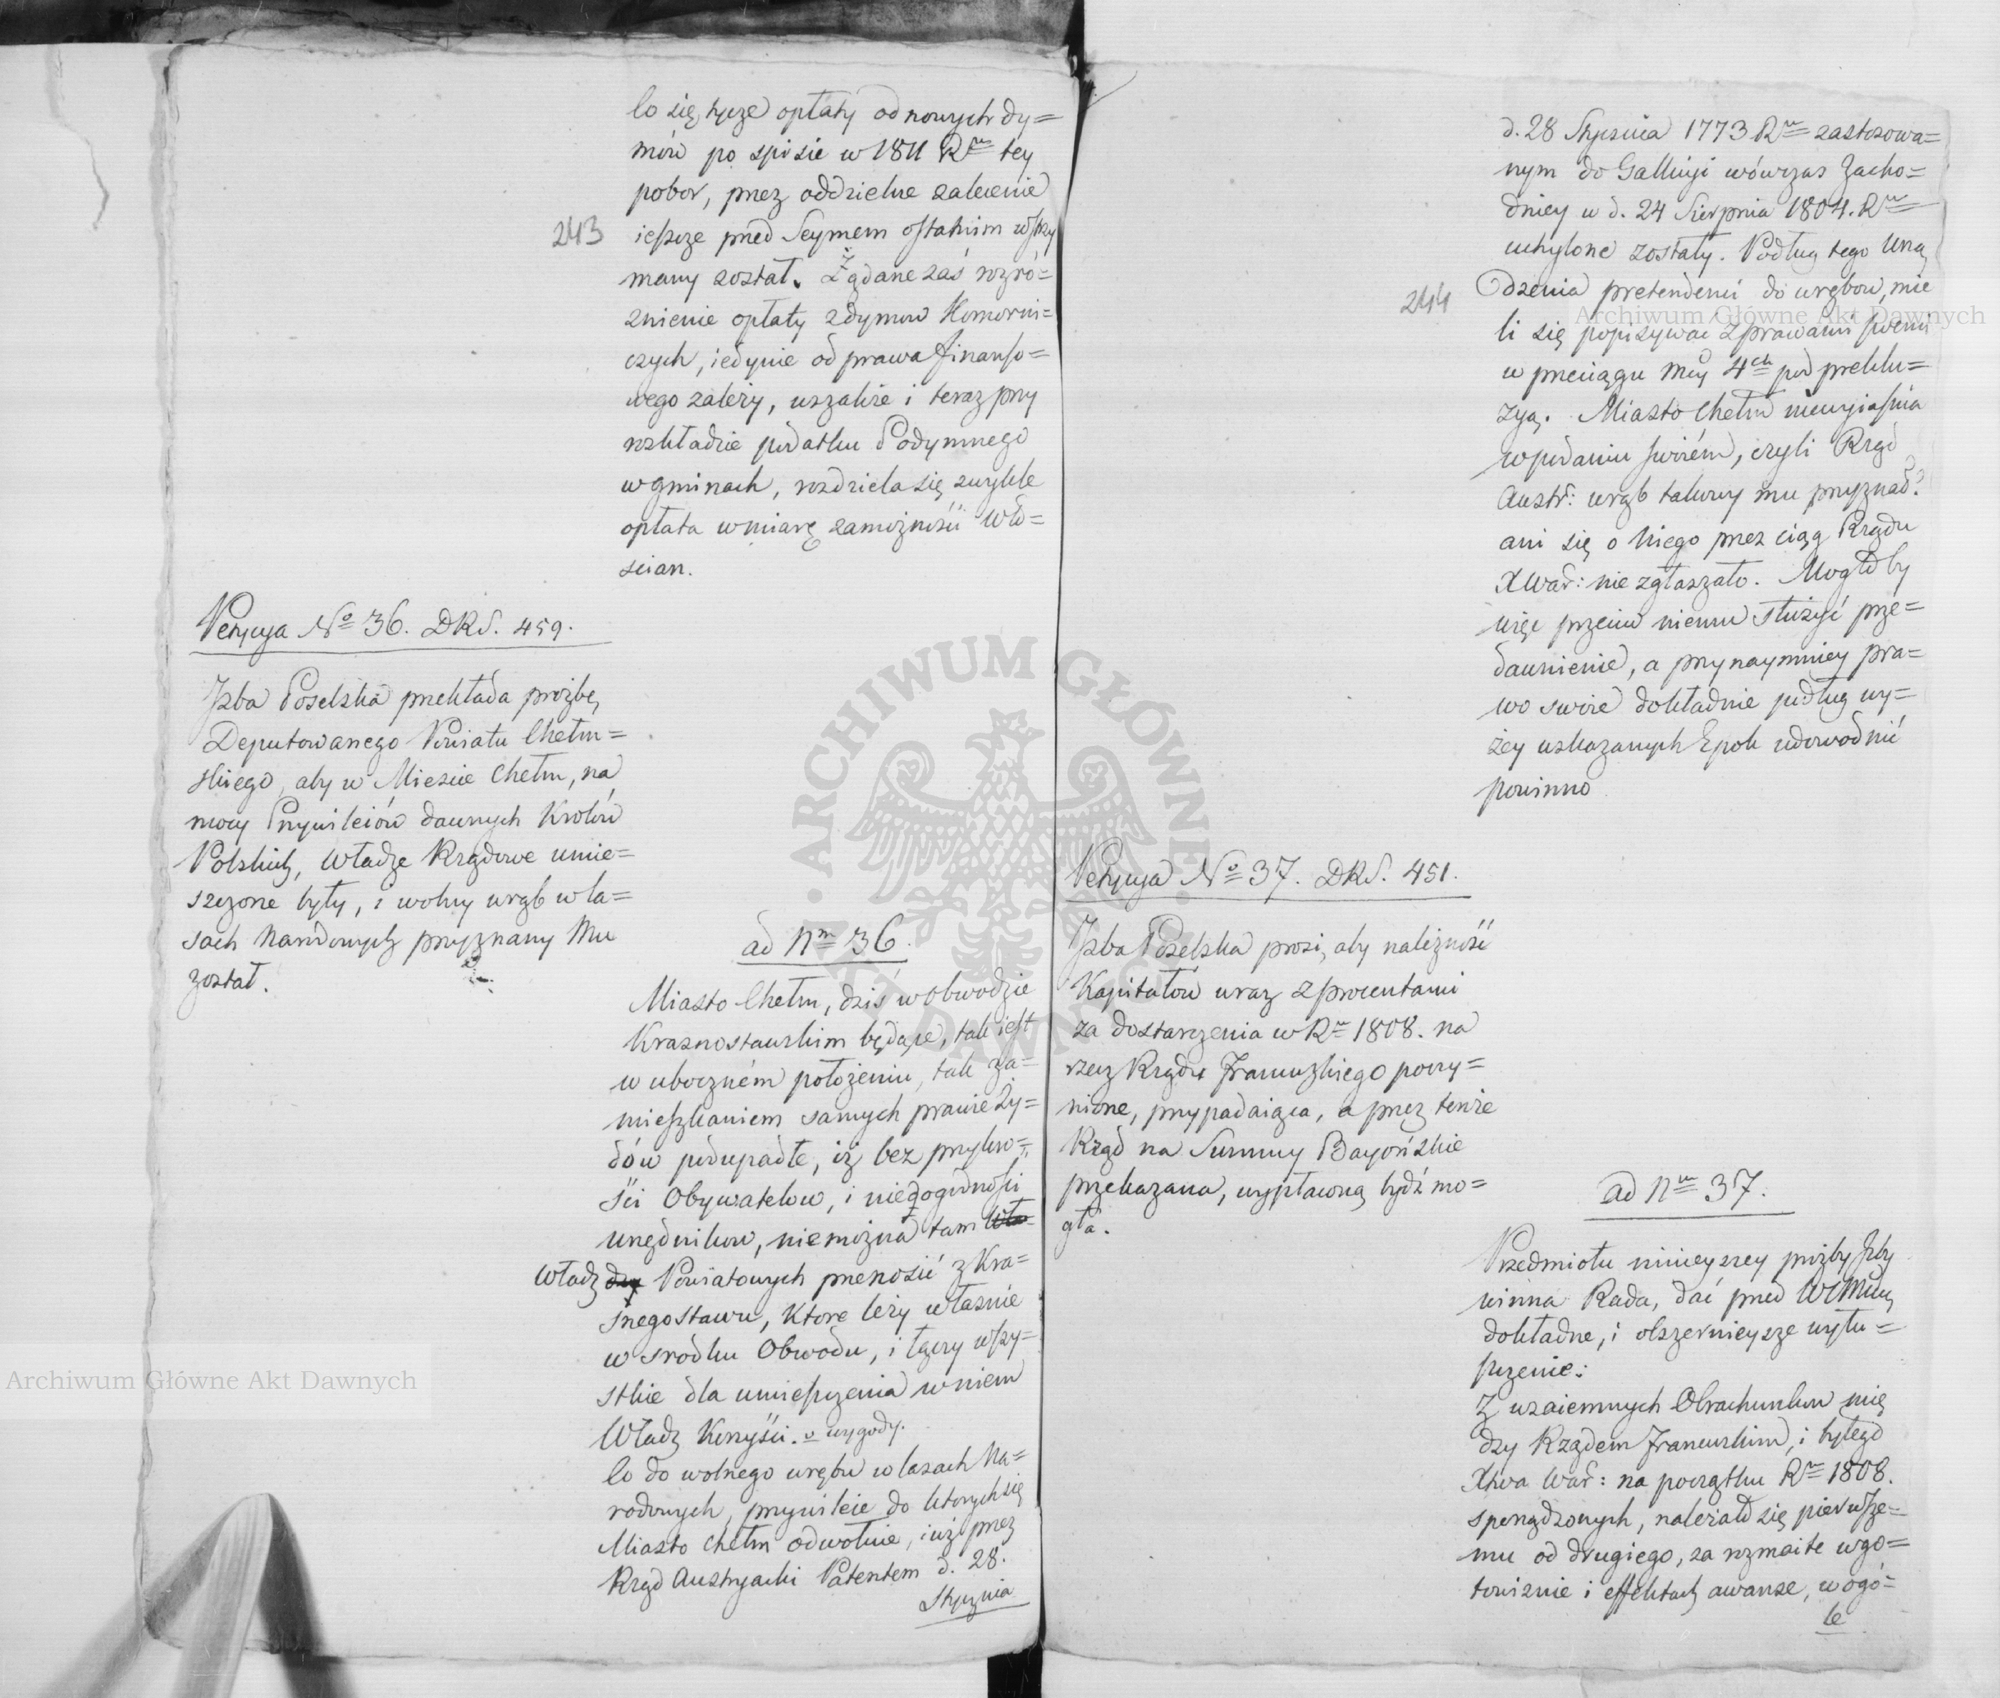 Co się tycze opłaty od nowych dy=
mów po spisie w 1811 Rᵘ tey
pobor, przez oddzielne zalecenie
243
ieszcze przed Seymem ostatnim wstrzy
many został. Żądane zaś rozró=
znienie opłaty z dymow Komorni=
czych, iedynie od prawa finanso=
wego zależy, wszakże i teraz przy
rozkładzie podatku Podymnego
w gminach, rozdziela się zwykle
opłata w miarę zamożności Wło=
scian.
Petycya No 36. DKS. 459.
Izba Poselska przekłada prozbę,
Deputowanego Powiatu Chełm=
skiego, aby w Miescie Chełm, na
mocy Przywileiów dawnych Krolów
Polskich, Władze Rządowe umie=
szczone były, i wolny wrąb w la=
sach Narodowych przyznany Mu
został.
ad Nm 36.
Miasto Chełm, dziś w obwodzie
Krasnostawskim będące, tak iest
w uboczném położeniu, tak za=
mieszkaniem samych prawie Ży=
dów podupadłe, iż bez przykro=
ści Obywatelow, i niedogodności
urzędnikow, niemożna tam
Władz Powiatowych przenosić z Kra=
snegostawu, ktore leży własnie
w srodku Obwodu, i łączy wszy=
stkie dla umieszczenia w niem
Władz Korzyści. o wygody.
Co do wolnego wrębu w lasach Na=
rodowych, przywileie do ktorych się
Miasto Chełm odwołuie, iuż przez
Rząd Austryacki Patentem d. 28.
Stycznia
d. 28 Stycznia 1773 Rᵘ zastosowa=
nym do Gallicyi wówczas Zacho=
dniey w d. 24 Sierpnia 1804. Rᵘ
uchylone zostały. Podług tego Urzą
244
dzenia pretendenci do wrębow, mie
li się popisywać z prawami swemi
w przeciągu Mcy 4ch pod preklu=
zyą. Miasto Chełm niewyiaśnia
w podaniu swoiém, czyli Rząd
Austr: wrąb takowy mu przyznał?
ani się o niego przez ciąg Rządu
X War: nie zgłaszało. Mogłoby
więc przeciw niemu służyć prze=
dawnienie, a przynaymniey pra=
wo swoie dokładnie podług wy=
żey wskazanych Epok udowodnić
powinno
Petycya No 37. DKS. 451.
Izba Poselska prosi, aby należność
Kapitałow wraz z procentami
za dostarczenia w Rᵘ 1808. na
rzecz Rządu Francuzkiego poczy=
nione, przypadaiąca, a przez tenże
Rząd na Summy Bayońskie
przekazana, wypłaconą bydź mo=
gła.
ad Nm 37.
Przedmiotu ninieyszey prożby Izby
winna Rada, dać przed WCMcią
dokładne, i obszernieysze wytłu=
szczenie:
Z wzaiemnych Obrachunkow mię
dzy Rządem Francuskim, i byłego
Xtwa War: na początku Rᵘ 1808.
sporządzonych, należało się pierwsze=
mu od drugiego, za rozmaite w go=
towiznie i effektach awanse, w ogó=
le
Archiwum Główne Akt Dawnych
Archiwum Główne Akt Dawnych
ARCHIWUM GŁÓWNE AKT DAWNYCH